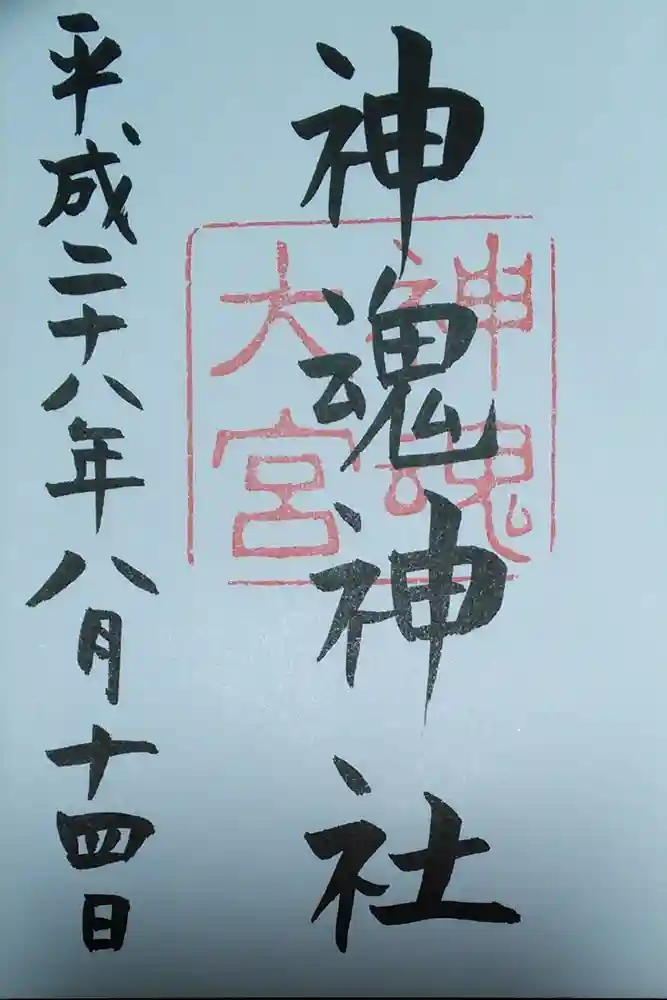 神魂神社
神魂
大宮
平成二十八年八月十四日